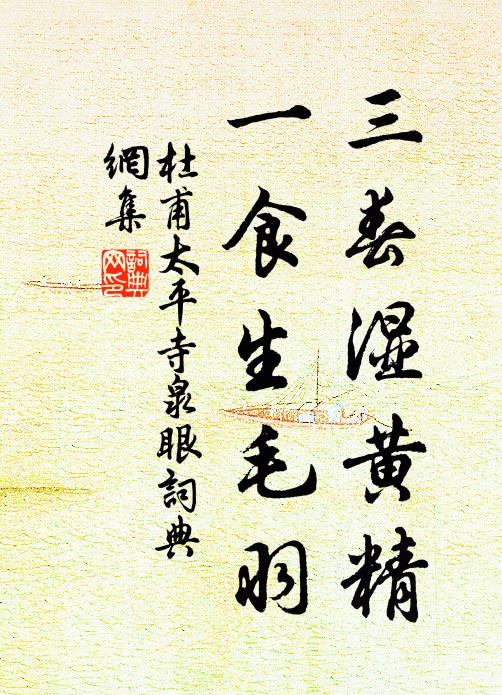 三春湿黄精
一食生毛羽
杜甫太平寺泉眼詞典
網集
詞典
网印